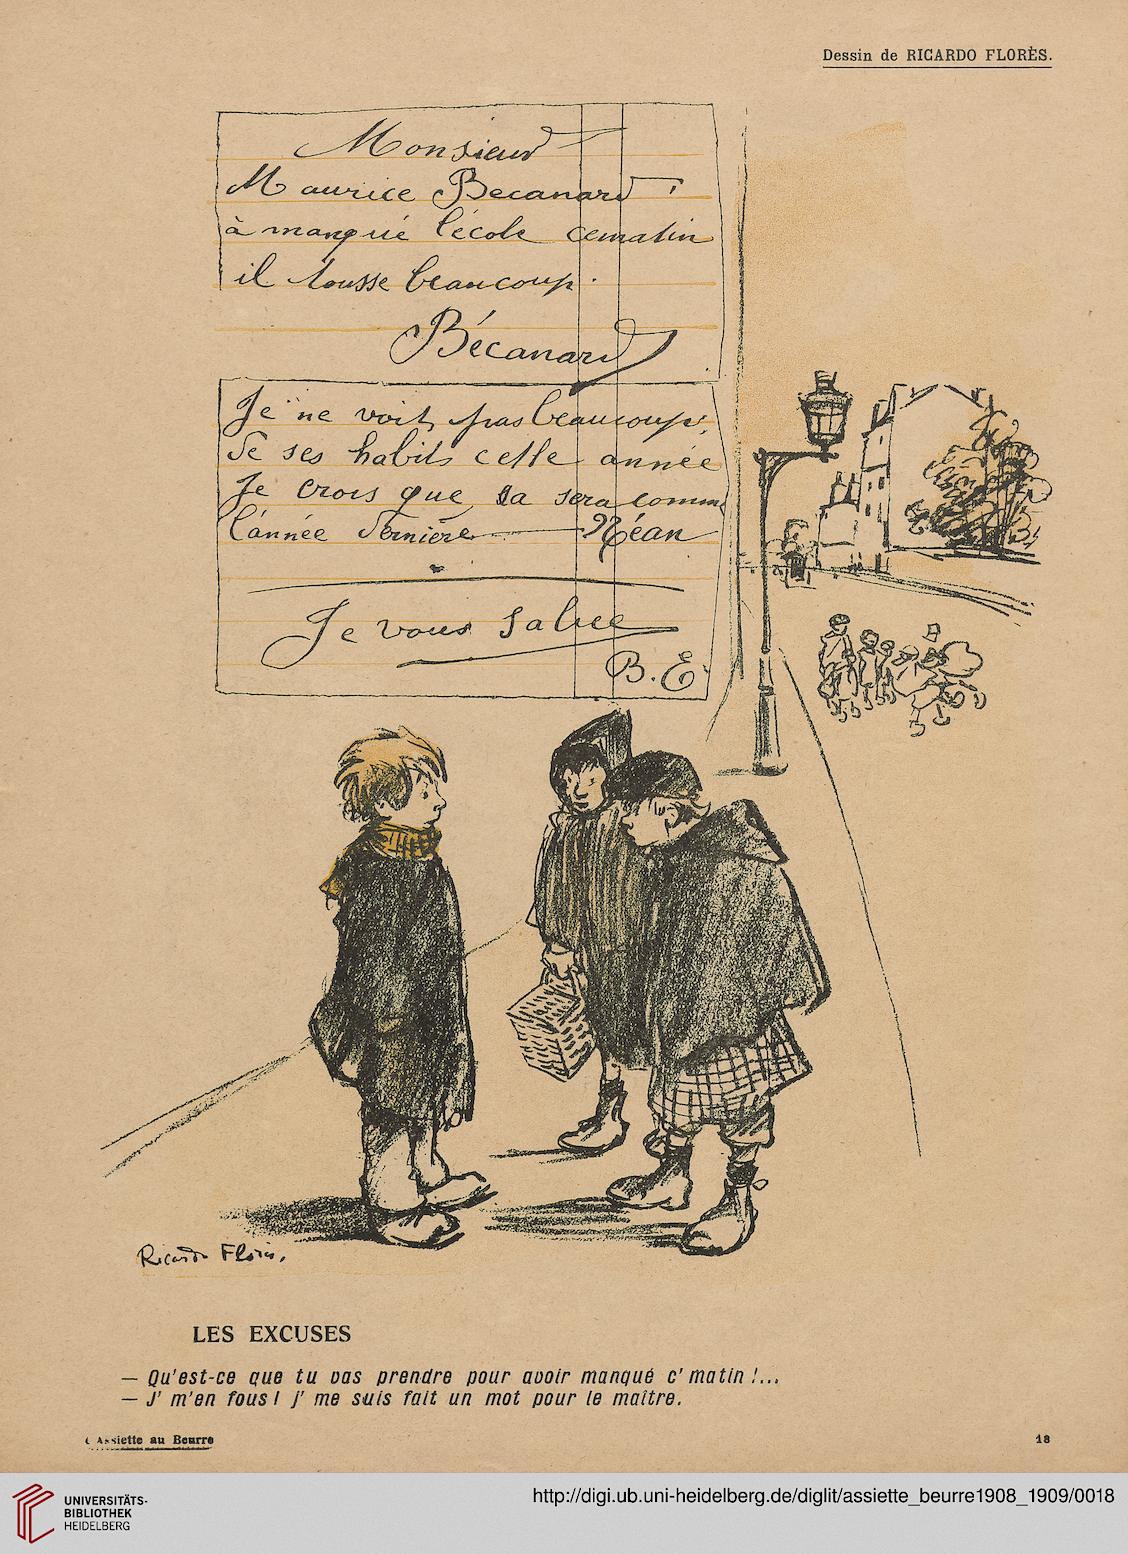 Dessin de RICARDO FLORÈS.
Monsieur
Maurice Becanard
à manqué l'école cematin
il tousse beaucoup.
Bécanard
Je ne voit pas beaucoup,
de ses habits cette année
Je crois que sa sera comme
l'année dernière Néan
Je vous salue
B. E.
Ricardo Florès.
LES EXCUSES
— Qu'est-ce que tu vas prendre pour avoir manqué c' matin !...
— J' m'en fous ! j' me suis fait un mot pour le maître.
Assiette au Beurre
18
UNIVERSITÄTS-
BIBLIOTHEK
HEIDELBERG
http://digi.ub.uni-heidelberg.de/diglit/assiette_beurre1908_1909/0018